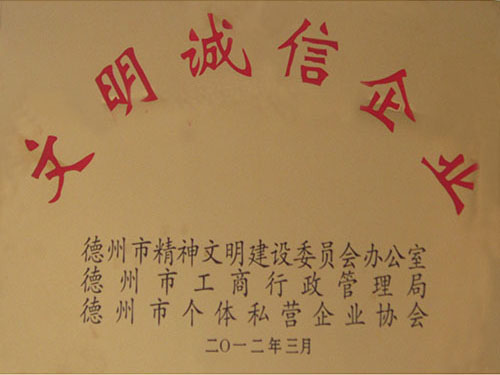 文明诚信企业
德州市精神文明建设委员会办公室
德州市工商行政管理局
德州市个体私营企业协会
二〇一二年三月